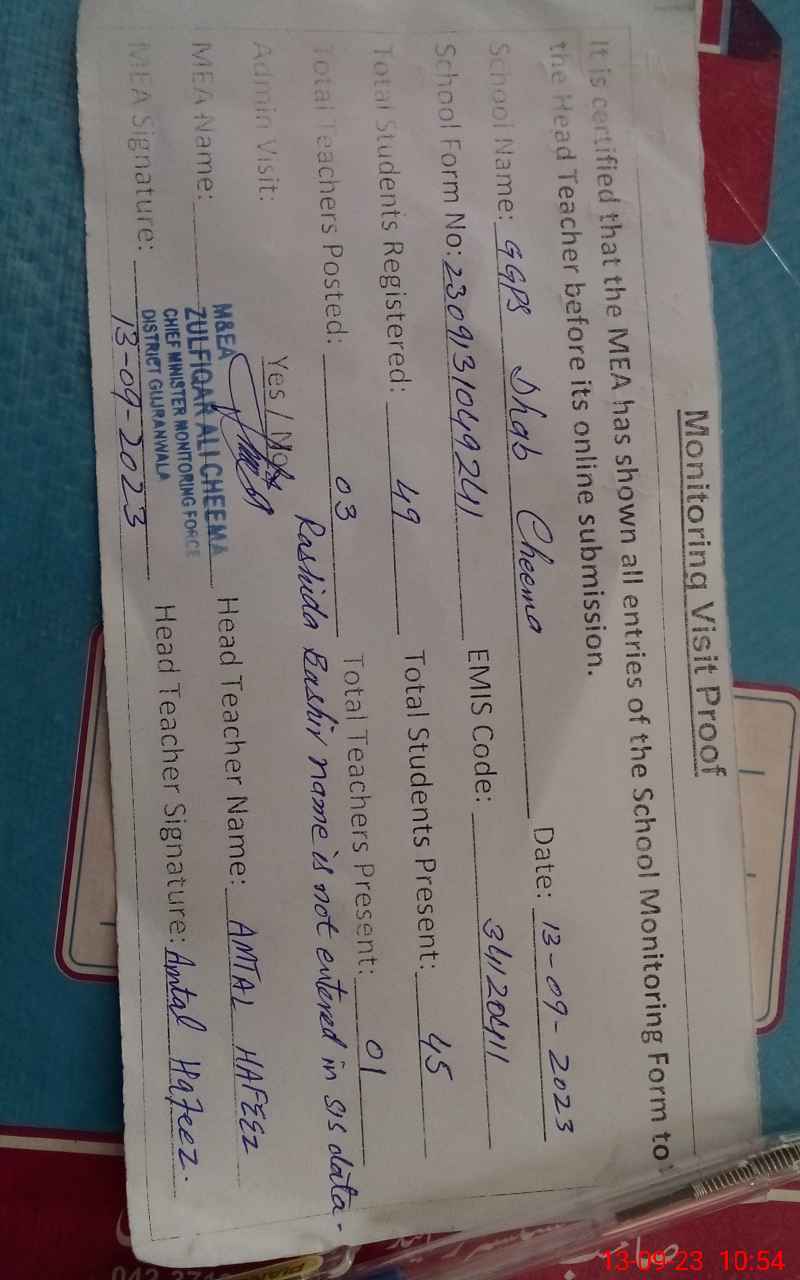 Monitoring Visit Proof
It is certified that the MEA has shown all entries of the School Monitoring Form to
the Head Teacher before its online submission.
School Name: GGPS Dhab Cheema Date: 13-09-2023
School Form No: 2309131049241 EMIS Code: 34120411
Total Students Registered: 49 Total Students Present: 45
Total Teachers Posted: 03 Total Teachers Present: 01
Rashida Bashir name is not entered in SIS data.
Admin Visit: Yes / No
MEA Name: Head Teacher Name: AMTAL HAFEEZ
M&EA
ZULFIQAR ALI CHEEMA
CHIEF MINISTER MONITORING FORCE
DISTRICT GUJRANWALA
MEA Signature: Head Teacher Signature: Amtal Hafeez.
13-09-2023
13-09-23 10:54